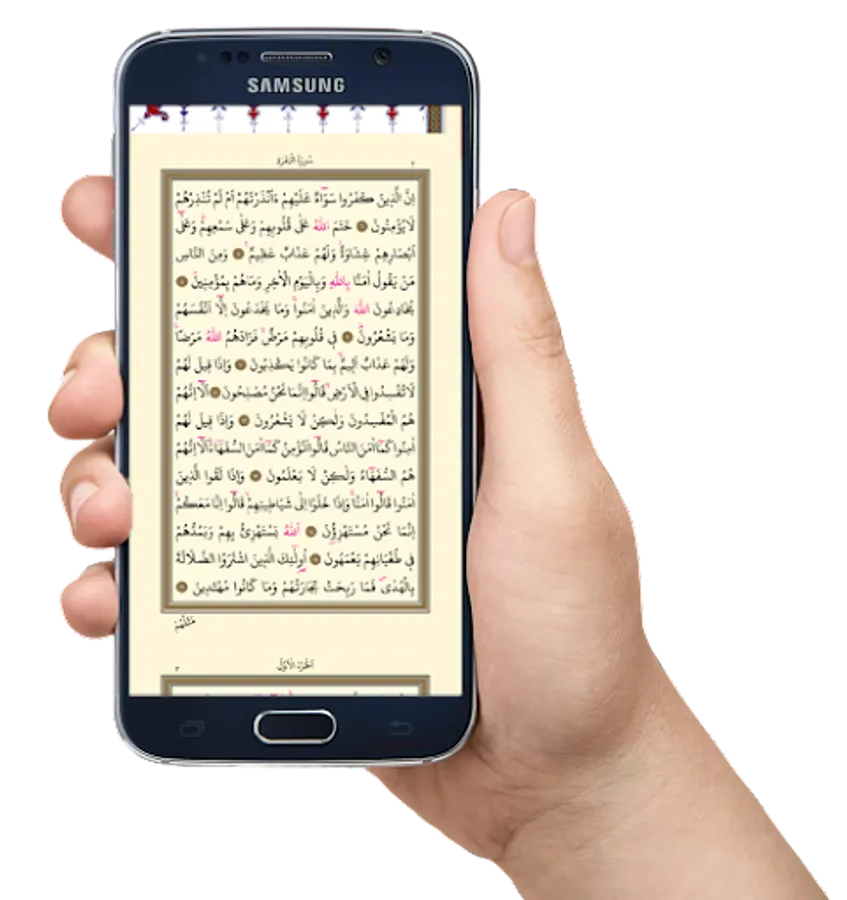 SAMSUNG
سُورَةُ الْبَقَرَةِ ٢
اِنَّ الَّذ۪ينَ كَفَرُوا سَوَٓاءٌ عَلَيْهِمْ ءَاَنْذَرْتَهُمْ اَمْ لَمْ تُنْذِرْهُمْ
لَا يُؤْمِنُونَ ۝ خَتَمَ اللّٰهُ عَلٰى قُلُوبِهِمْ وَعَلٰى سَمْعِهِمْۜ وَعَلٰٓى
اَبْصَارِهِمْ غِشَاوَةٌۘ وَلَهُمْ عَذَابٌ عَظ۪يمٌ ۝ وَمِنَ النَّاسِ
مَنْ يَقُولُ اٰمَنَّا بِاللّٰهِ وَبِالْيَوْمِ الْاٰخِرِ وَمَاهُمْ بِمُؤْمِن۪ينَۢ ۝
يُخَادِعُونَ اللّٰهَ وَالَّذ۪ينَ اٰمَنُواۚ وَمَا يَخْدَعُونَ اِلَّٓا اَنْفُسَهُمْ
وَمَا يَشْعُرُونَۜ ۝ ف۪ي قُلُوبِهِمْ مَرَضٌۙ فَزَادَهُمُ اللّٰهُ مَرَضًاۚ
وَلَهُمْ عَذَابٌ اَل۪يمٌۙ بِمَا كَانُوا يَكْذِبُونَ ۝ وَاِذَا ق۪يلَ لَهُمْ
لَا تُفْسِدُوا فِي الْاَرْضِۙ قَالُٓوا اِنَّمَا نَحْنُ مُصْلِحُونَ ۝ اَلَٓا اِنَّهُمْ
هُمُ الْمُفْسِدُونَ وَلٰكِنْ لَا يَشْعُرُونَ ۝ وَاِذَا ق۪يلَ لَهُمْ
اٰمِنُوا كَمَٓا اٰمَنَ النَّاسُ قَالُٓوا اَنُؤْمِنُ كَمَٓا اٰمَنَ السُّفَهَٓاءُۜ اَلَٓا اِنَّهُمْ
هُمُ السُّفَهَٓاءُ وَلٰكِنْ لَا يَعْلَمُونَ ۝ وَاِذَا لَقُوا الَّذ۪ينَ
اٰمَنُوا قَالُٓوا اٰمَنَّاۚ وَاِذَا خَلَوْا اِلٰى شَيَاط۪ينِهِمْۙ قَالُٓوا اِنَّا مَعَكُمْۙ
اِنَّمَا نَحْنُ مُسْتَهْزِؤُ۫نَ ۝ اَللّٰهُ يَسْتَهْزِئُ بِهِمْ وَيَمُدُّهُمْ
ف۪ي طُغْيَانِهِمْ يَعْمَهُونَ ۝ اُو۬لٰٓئِكَ الَّذ۪ينَ اشْتَرَوُا الضَّلَالَةَ
بِالْهُدٰىۖ فَمَا رَبِحَتْ تِجَارَتُهُمْ وَمَا كَانُوا مُهْتَد۪ينَ ۝
مَثَلُهُمْ
اَلْجُزْءُ الْاَوَّلُ ٣